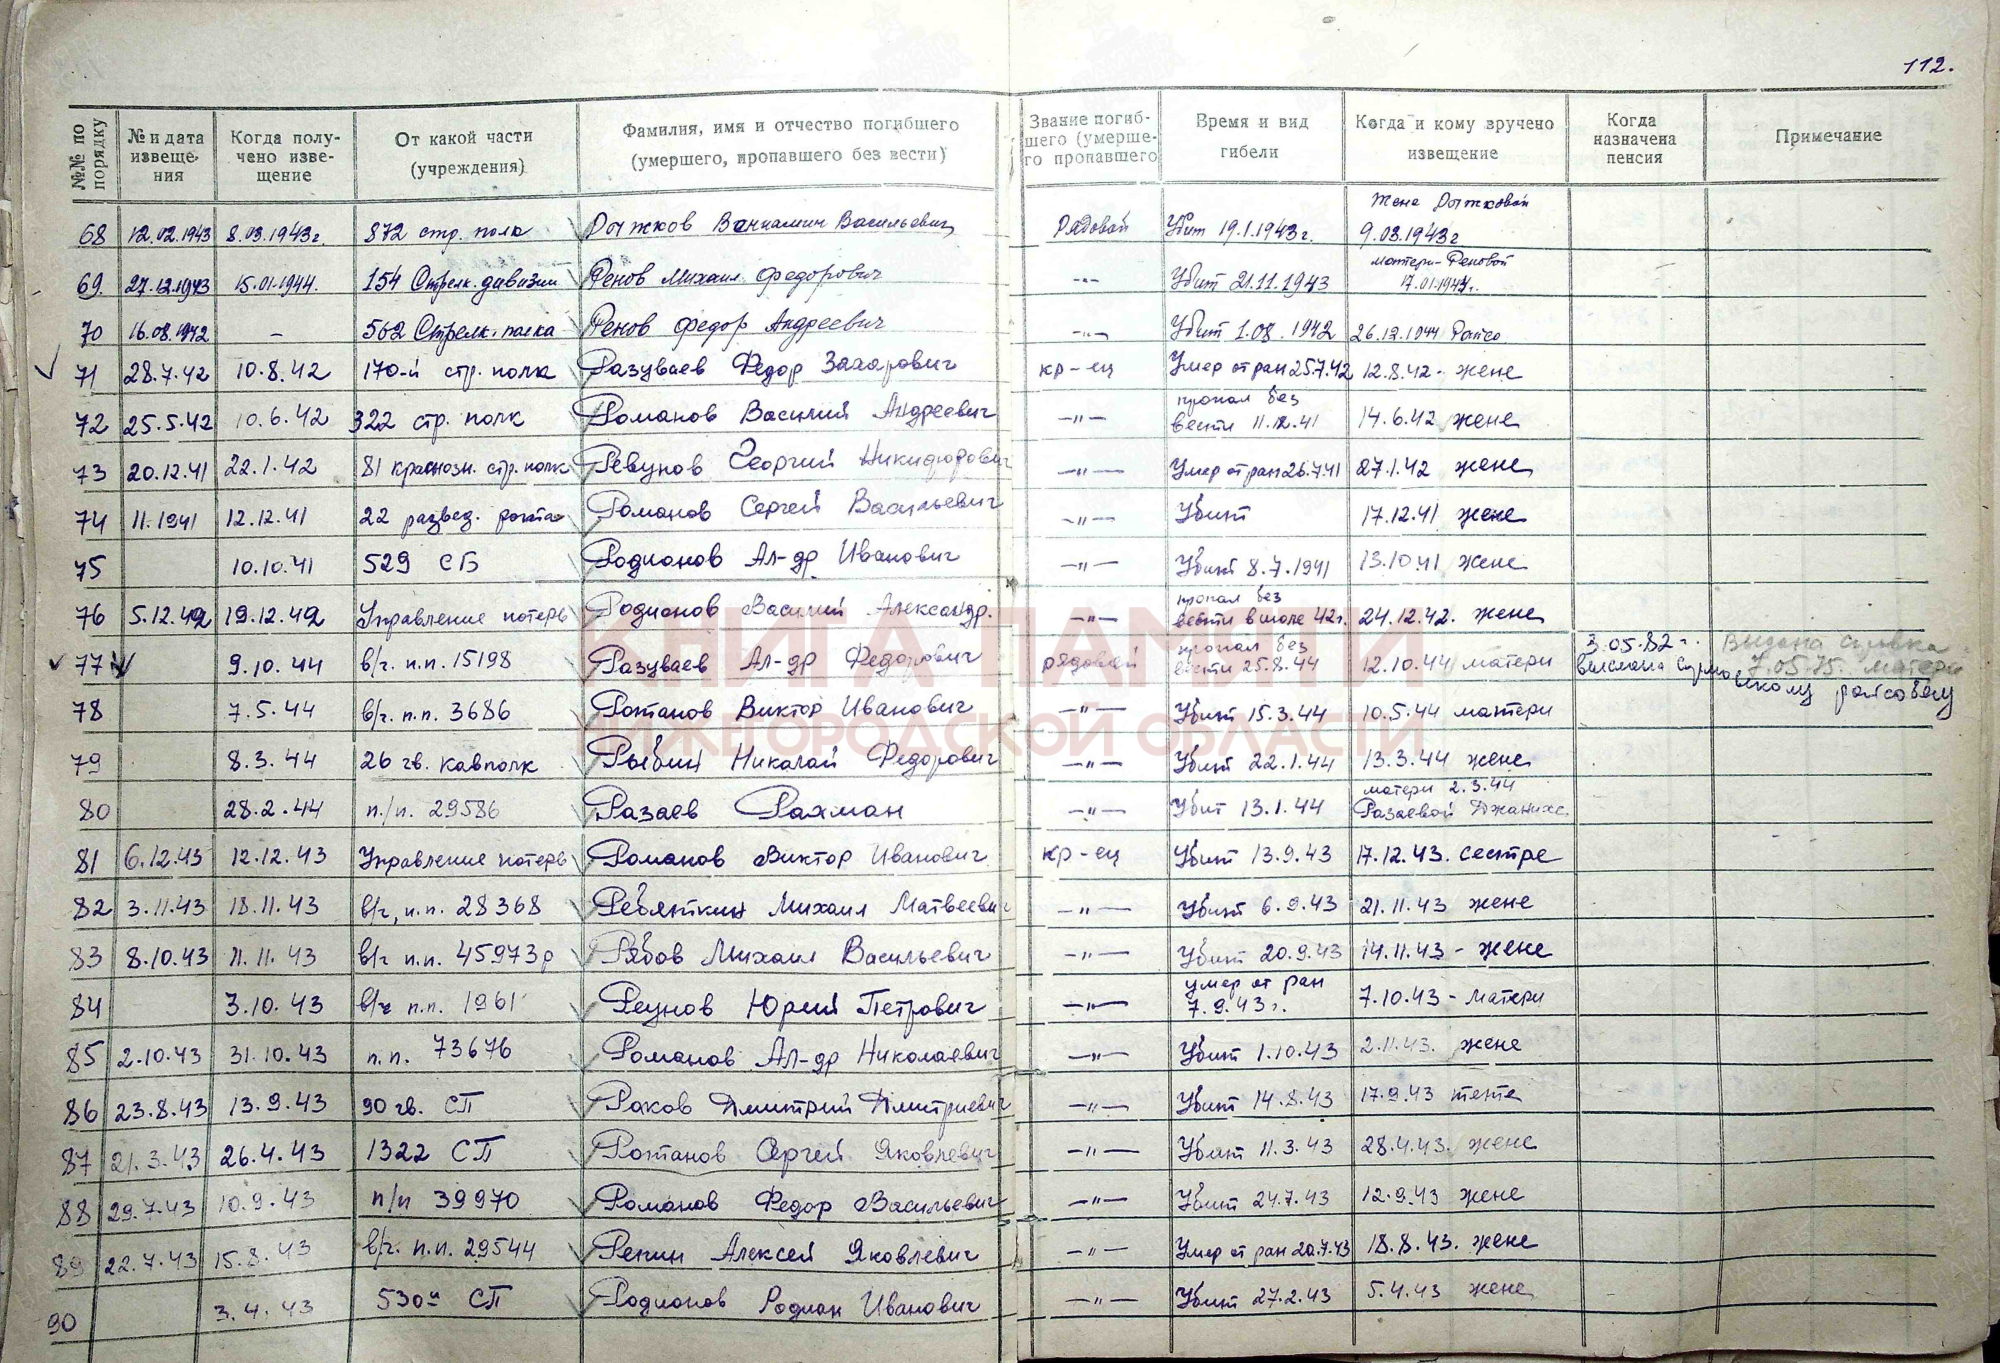 112.
№№ по порядку | № и дата извещения | Когда получено извещение | От какой части (учреждения) | Фамилия, имя и отчество погибшего (умершего, пропавшего без вести) | Звание погибшего (умершего пропавшего | Время и вид гибели | Когда и кому вручено извещение | Когда назначена пенсия | Примечание
68 | 12.02.1943 | 8.03.1943г. | 872 стр. полк | Рыжков Вениамин Васильевич | Рядовой | Убит 19.1.1943г. | Жене Рыжковой 9.03.1943г
69. | 27.12.1943 | 15.01.1944. | 154 Стрелк. дивизии | Ренов Михаил Федорович | -"- | Убит 21.11.1943 | матери-Реновой 17.01.1944г.
70 | 16.08.1942 | – | 562 Стрелк. полка | Ренов Федор Андреевич | -"- | Убит 1.08.1942 | 26.12.1944
71 | 28.7.42 | 10.8.42 | 170-й стр. полк | Разуваев Федор Захарович | кр-ец | Умер от ран 25.7.42 | 12.8.42 - жене
72 | 25.5.42 | 10.6.42 | 322 стр. полк | Романов Василий Андреевич | -"- | пропал без вести 11.12.41 | 14.6.42 жене
73 | 20.12.41 | 22.1.42 | 81 краснозн. стр. полк | Ревунов Георгий | -"- | Умер от ран 26.7.41 | 27.1.42 жене
74 | 11.1941 | 12.12.41 | 22 развед. рота | Романов Сергей Васильевич | -"- | Убит | 17.12.41 жене
75 | 10.10.41 | 529 СБ | Родионов Ал-др Иванович | -"- | Убит 8.7.1941 | 13.10.41 жене
76 | 5.12.42 | 19.12.42 | Управление потерь | Родионов Василий Александр. | -"- | пропал без вести в июле 42г. | 24.12.42. жене
77 | 9.10.44 | в/ч. п.п. 15198 | Разуваев Ал-др Федорович | рядовой | пропал без вести 25.8.44 | 12.10.44 матери | 3.05.82г. выслана Сормовскому райсобесу | Выдана справка 7.05.75. матери
78 | 7.5.44 | в/ч. п.п. 3686 | Ротанов Виктор Иванович | -"- | Убит 15.3.44 | 10.5.44 матери
79 | 8.3.44 | 26 гв. кавполк | Рыбин Николай Федорович | -"- | Убит 22.1.44 | 13.3.44 жене
80 | 28.2.44 | п/п. 29586 | Разаев Рахман | -"- | Убит 13.1.44 | матери 2.3.44 Разаевой
81 | 6.12.43 | 12.12.43 | Управление потерь | Романов Виктор Иванович | кр-ец | Убит 13.9.43 | 17.12.43. сестре
82 | 3.11.43 | 18.11.43 | в/ч, п.п. 28368 | Ребяткин Михаил Матвеевич | -"- | Убит 6.9.43 | 21.11.43 жене
83 | 8.10.43 | 11.11.43 | в/ч п.п. 45973р | Рябов Михаил Васильевич | -"- | Убит 20.9.43 | 14.11.43 - жене
84 | 3.10.43 | в/ч п.п. 1961 | Реунов Юрий Петрович | -"- | умер от ран 7.9.43г. | 7.10.43 - матери
85 | 2.10.43 | 31.10.43 | п.п. 73676 | Романов Ал-др Николаевич | -"- | Убит 1.10.43 | 2.11.43. жене
86 | 23.8.43 | 13.9.43 | 90 гв. СП | Раков Дмитрий Дмитриевич | -"- | Убит 14.8.43 | 17.9.43 тете
87 | 21.3.43 | 26.4.43 | 1322 СП | Ротанов Сергей Яковлевич | -"- | Убит 11.3.43 | 28.4.43. жене
88 | 29.7.43 | 10.9.43 | п/п 39970 | Романов Федор Васильевич | -"- | Убит 24.7.43 | 12.9.43 жене
89 | 22.7.43 | 15.8.43 | в/ч. п.п. 29544 | Репин Алексей Яковлевич | -"- | Умер от ран 20.7.43 | 18.8.43. жене
90 | 3.4.43 | 530й СП | Родионов Родион Иванович | -"- | Убит 27.2.43 | 5.4.43 жене
КНИГА ПАМЯТИ
НИЖЕГОРОДСКОЙ ОБЛАСТИ